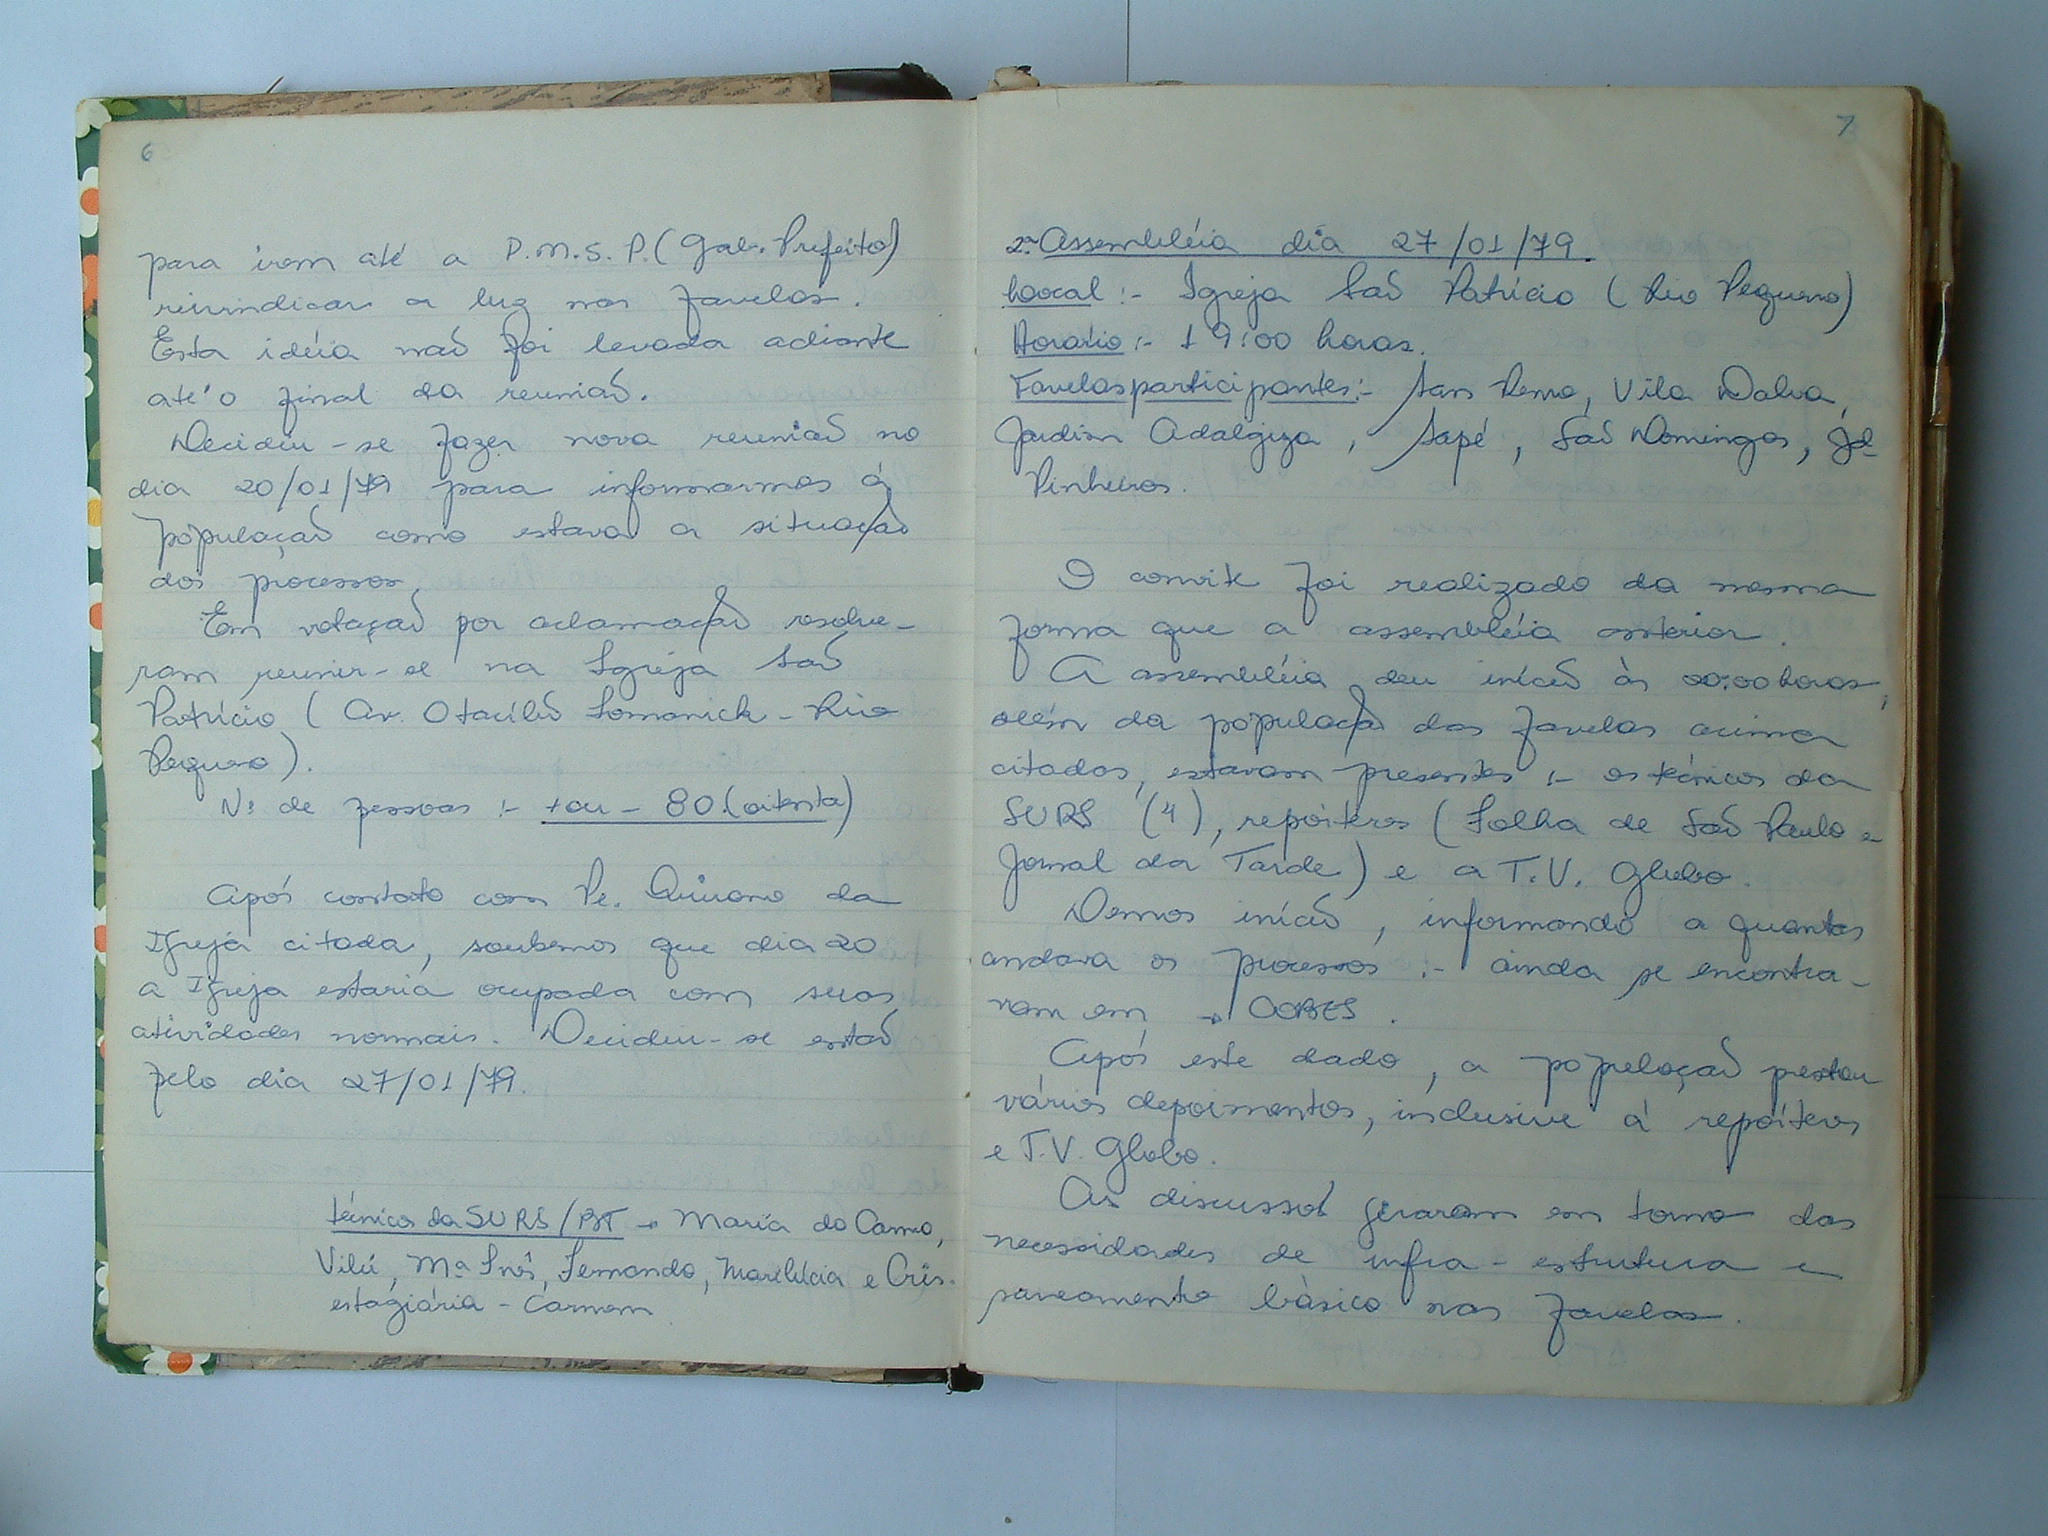 6
para irem até a P.M.S.P. (Gab. Prefeito)
reivindicar a luz nas favelas.
Esta idéia não foi levada adiante
até o final da reunião.
Decidiu-se fazer nova reunião no
dia 20/01/79 para informarmos à
população como estava a situação
dos processos.
Em votação por aclamação resolve-
ram reunir-se na Igreja São
Patrício (Av. Otacílio Tomanick - Rio
Pequeno).
Nº de pessoas :- + ou - 80 (oitenta)
Após contato com Pe. da
Igreja citada, soubemos que dia 20
a Igreja estaria ocupada com suas
atividades normais. Decidiu-se então
pelo dia 27/01/79.
técnicos da SURS/BT → Maria do Carmo,
Mª Inês, Fernando, Marilúcia e Cris.
estagiária - Carmem
7
2ª Assembléia dia 27/01/79.
Local :- Igreja São Patrício (Rio Pequeno)
Horário :- 19:00 horas.
Favelas participantes :- San Remo, Vila Dalva,
Jardim Adalgiza, Sapé, São Domingos, Jd.
Pinheiros.
O convite foi realizado da mesma
forma que a assembléia anterior.
A assembléia deu início às 20:00 horas,
além da população das favelas acima
citadas, estavam presentes :- os técnicos da
SURS (4), repórteres (Folha de São Paulo e
Jornal da Tarde) e a T.V. Globo.
Demos início, informando a quantas
andava os processos :- ainda se encontra-
vam em → COBES.
Após este dado, a população prestou
vários depoimentos, inclusive à repórteres
e T.V. Globo.
As discussões giraram em torno das
necessidades de infra-estrutura e
saneamento básico nas favelas.